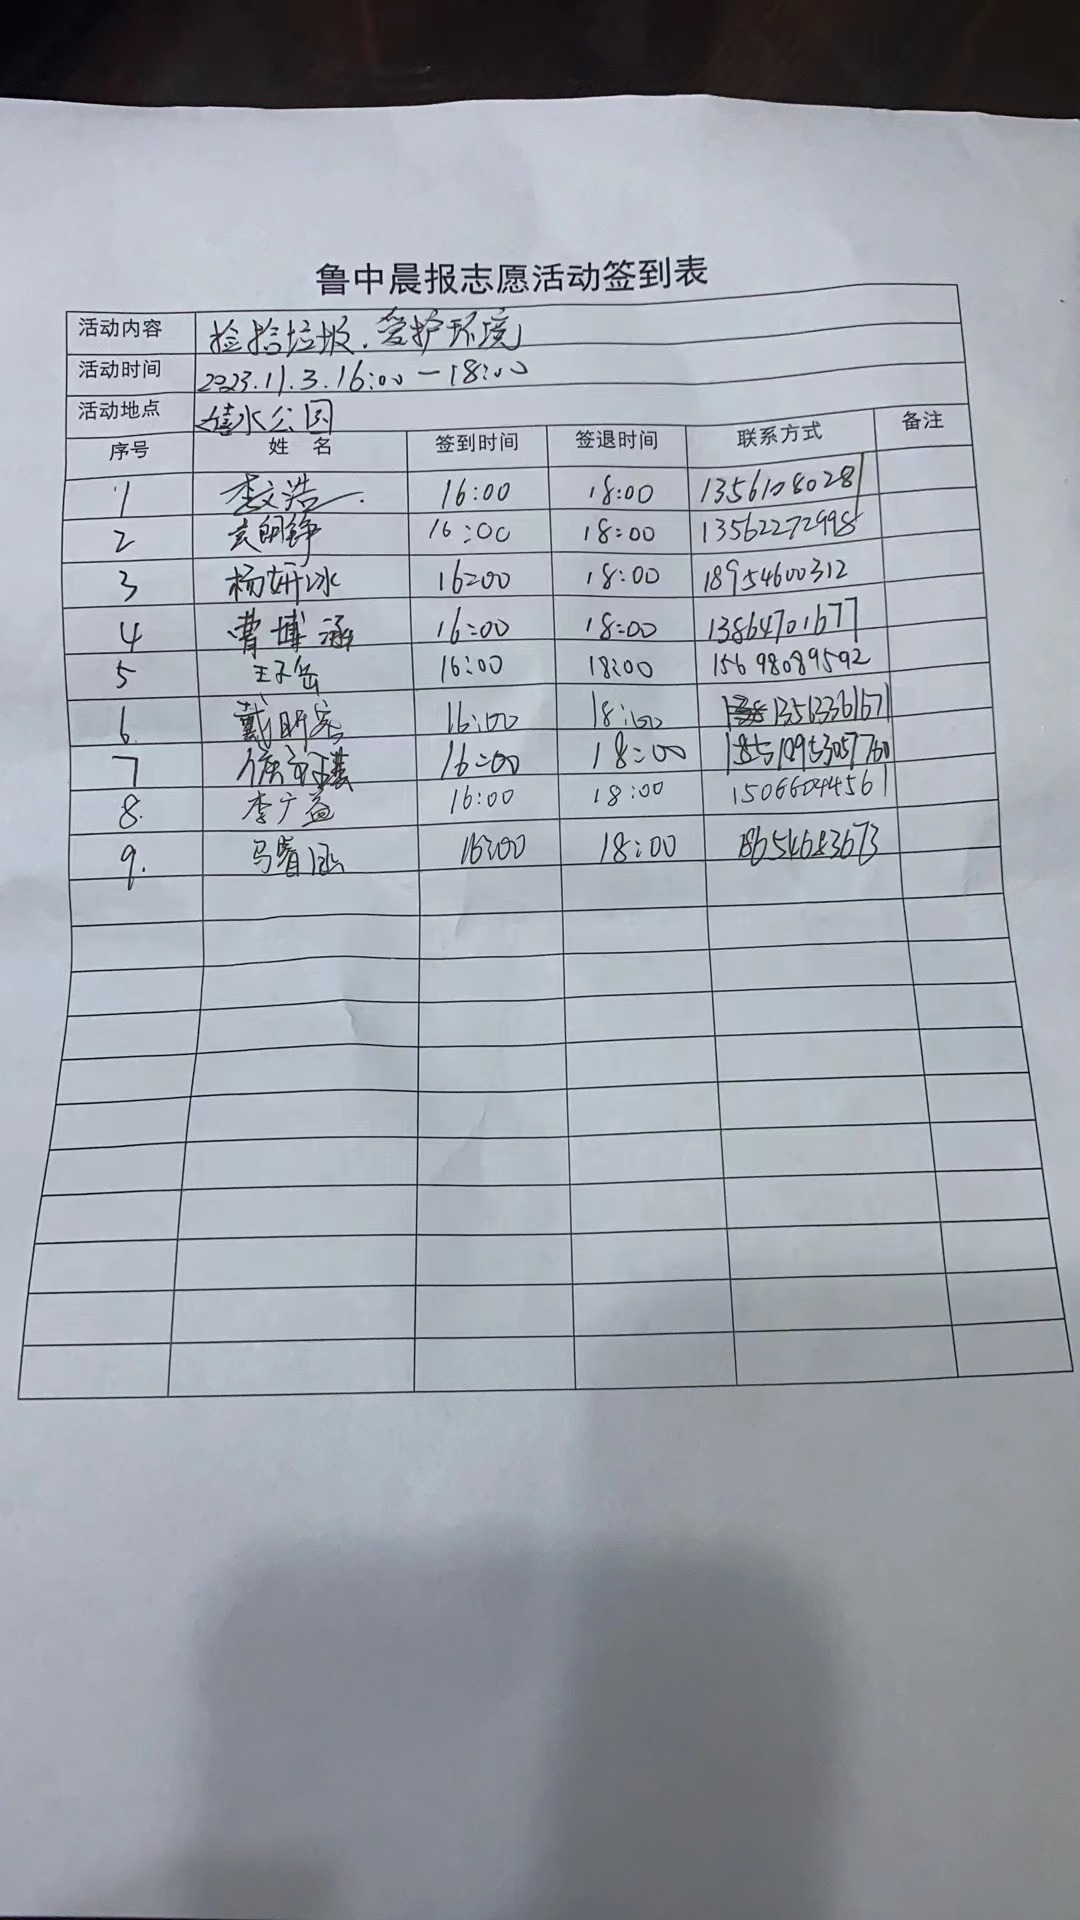 鲁中晨报志愿活动签到表
活动内容 捡拾垃圾.爱护环境
活动时间 2023.11.3.16:00-18:00
活动地点 嬉水公园
序号 姓 名 签到时间 签退时间 联系方式 备注
1 李文浩 16:00 18:00 13561080281
2 袁朗铮 16:00 18:00 13562272998
3 杨妍冰 16:00 18:00 18954600312
4 曹博涵 16:00 18:00 13864701677
5 王子岳 16:00 18:00 15698089592
6. 16:00 18:00 13563361671
7 16:00 18:00
8. 李广益 16:00 18:00 15066094561
9. 马睿涵 16:00 18:00 18654683673